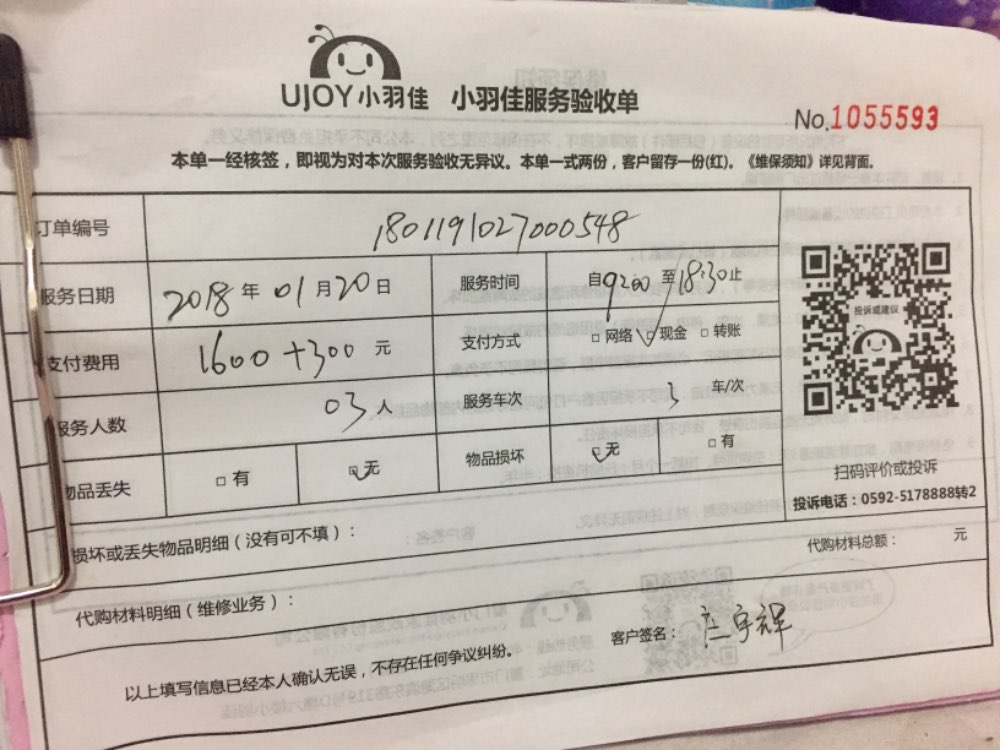 UJOY小羽佳 小羽佳服务验收单
No.1055593
本单一经核签，即视为对本次服务验收无异议。本单一式两份，客户留存一份(红)。《维保须知》详见背面。
订单编号 1801191027000548
服务日期 2018年01月20日 服务时间 自9:00至18:30止
支付费用 1600+300元 支付方式 □网络 ☑现金 □转账
服务人数 03人 服务车次 3 车/次
物品丢失 □有 ☑无 物品损坏 ☑无 □有
投诉或建议
扫码评价或投诉
投诉电话：0592-5178888转2
损坏或丢失物品明细（没有可不填）：
代购材料总额： 元
代购材料明细（维修业务）：
客户签名：庄宇辉
以上填写信息已经本人确认无误，不存在任何争议纠纷。